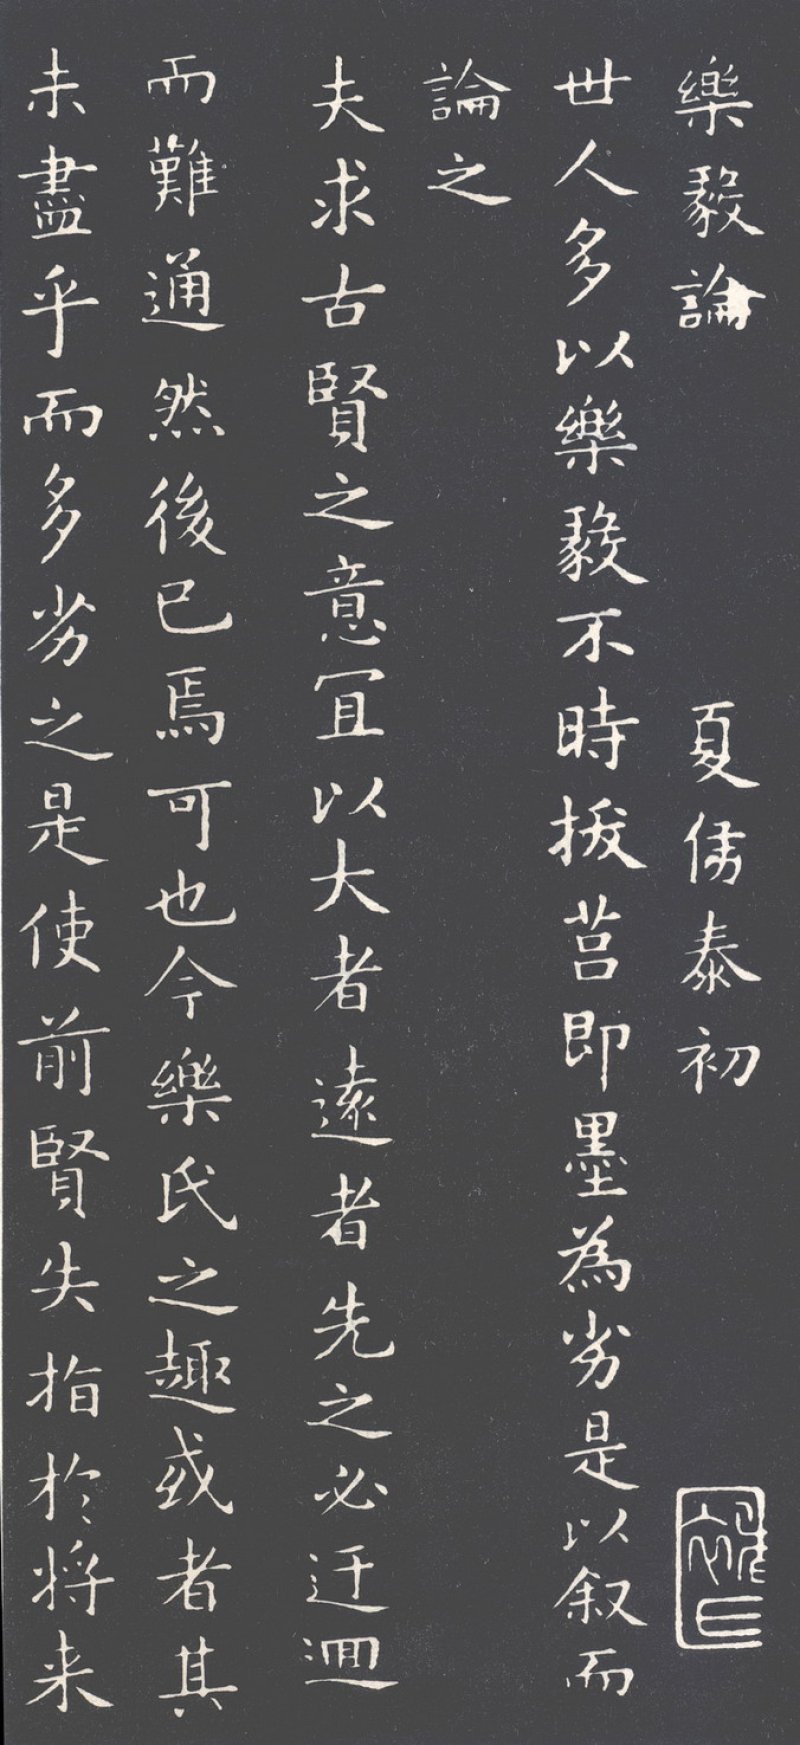 樂毅論 夏侯泰初
世人多以樂毅不時拔莒即墨為劣是以叙而
論之
夫求古賢之意宜以大者遠者先之必迂迴
而難通然後已焉可也今樂氏之趣或者其
未盡乎而多劣之是使前賢失指於將来